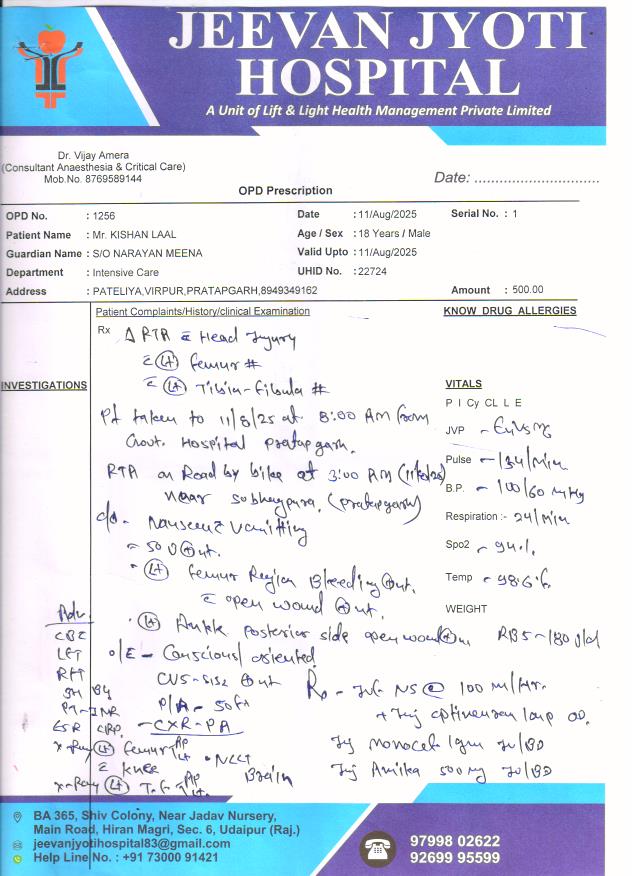 JEEVAN JYOTI
HOSPITAL
A Unit of Lift & Light Health Management Private Limited
Dr. Vijay Amera
(Consultant Anaesthesia & Critical Care)
Mob.No. 8769589144
Date: ..............................
OPD Prescription
OPD No. : 1256 Date : 11/Aug/2025 Serial No. : 1
Patient Name : Mr. KISHAN LAAL Age / Sex : 18 Years / Male
Guardian Name : S/O NARAYAN MEENA Valid Upto : 11/Aug/2025
Department : Intensive Care UHID No. : 22724
Address : PATELIYA,VIRPUR,PRATAPGARH,8949349162 Amount : 500.00
Patient Complaints/History/clinical Examination
KNOW DRUG ALLERGIES
Rx Δ RTA c̄ Head Injury
c̄ (Lt) Femur #
c̄ (Lt) Tibia-Fibula #
Pt taken to 11/8/25 at 8:00 AM from
Govt. Hospital Pratapgarh.
RTA on Road by bike at 3:00 AM (11/8/25)
near (Pratapgarh)
c/o - Vomitting
(Lt) Femur Region Bleeding
c̄ open wound
(Lt) Ankle posterior side open wound
O/E - Conscious/oriented
CVS-S1S2
P/A - Soft
- CXR-PA
• NCCT
Brain
INVESTIGATIONS
Adv.
CBC
LFT
RFT
PT-INR
ESR CRP.
X-Ray (Lt) femur AP Lt
c̄ knee
X-Ray (Lt) AP Lt.
VITALS
P I Cy CL L E
JVP
Pulse - 134/Min
B.P. - 100/60 mmHg
Respiration :- 24/Min
Spo2 - 94%
Temp - 98.6°F
WEIGHT
RBS - 180
Rx - NS @ 100 ml/hr.
+ Inj 1amp OD.
Inj Monocef 1gm IV/BD
Inj Amika 500mg IV/BD
BA 365, Shiv Colony, Near Jadav Nursery,
Main Road, Hiran Magri, Sec. 6, Udaipur (Raj.)
jeevanjyotihospital83@gmail.com
Help Line No. : +91 73000 91421
97998 02622
92699 95599